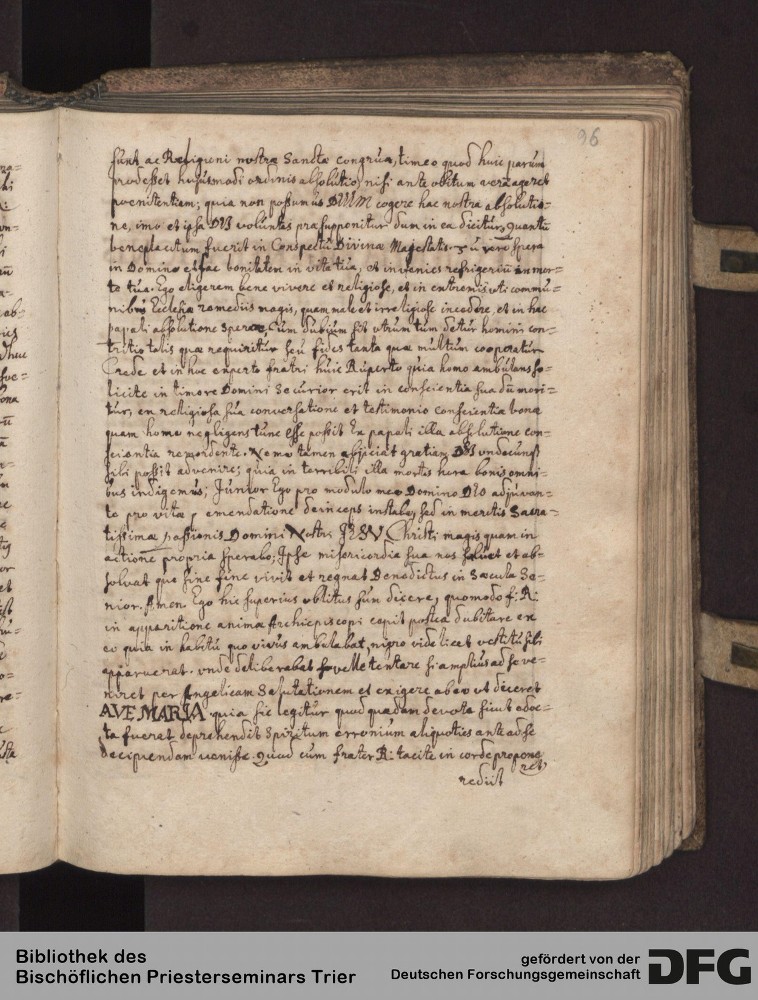 96
sunt ac Religioni nostræ Sanctæ congrua, timeo quod huic parum
prodesset huiusmodi ordinis absolutio, nisi ante obitum vera ageret
poenitentiam; quia non possumus DEUM cogere hac nostra absolutio=
ne, imo et ipsa DEI voluntas præsupponitur dum in ea dicitur, quantū
beneplacitum fuerit in Conspectu Divinæ Magestatis. Tū vero spera
in Domino et fac bonitatem in vita tua, et invenies refrigeriū in mor=
te tua. Ego eligerem bene vivere et religiose, et in extremis uti commu=
nibus Ecclesiæ remediis magis, quam male et irreligiose incedere, et in hac
papali absolutione sperare, Cum dubium sit utrum tum detur homini con=
tritio talis quæ requiritur seu fides tanta quæ multum cooperatur
Crede et in hoc experto fratri huic Ruperto quia homo ambulans so=
licite in timore Domini Securior erit in conscientia sua dū mori=
tur, ex religiosa sua conversatione et testimonio conscientia bonæ
quam homo negligens tunc esse possit Ex papali illa absolutione con=
scientia remordente. Nemo tamen abjiciat gratiam DEI undecunq
sibi possit advenire; quia in terribili illa mortis hora bonis omni=
bus indigemus; Junior Ego pro modulo meo Domino DEO adjuvan=
te pro vitæ emendatione deinceps instabo, sed in meritis Sacra=
tissimæ passionis Domini Nostri JESV Christi magis quam in
actione propria sperabo; Ipse misericordia sua nos salvet et ab=
solvat qui sine fine vivit et regnat Benedictus in Sæcula Se=
nior. Amen Ego hic superius oblitus sum dicere, quomodo f: R:
in apparitione animæ Archiepiscopi cepit postea dubitare ex
eo quia in habitu quo vivus ambulabat, nigro videlicet vestitu sibi
apparuerat. unde deliberabat se velle tentare si amplius ad se ve=
niret per Angelicam Salutationem et exigere ab eo ut diceret
AVE MARIA. quia sic legitur quod quædam devota sicut edoc=
ta fuerat deprehendit Spiritum erronium aliquoties ante ad se
decipiendam venisse. Quod cum frater R: tacite in corde propone
ret
rediit
Bibliothek des
Bischöflichen Priesterseminars Trier
gefördert von der
Deutschen Forschungsgemeinschaft
DFG